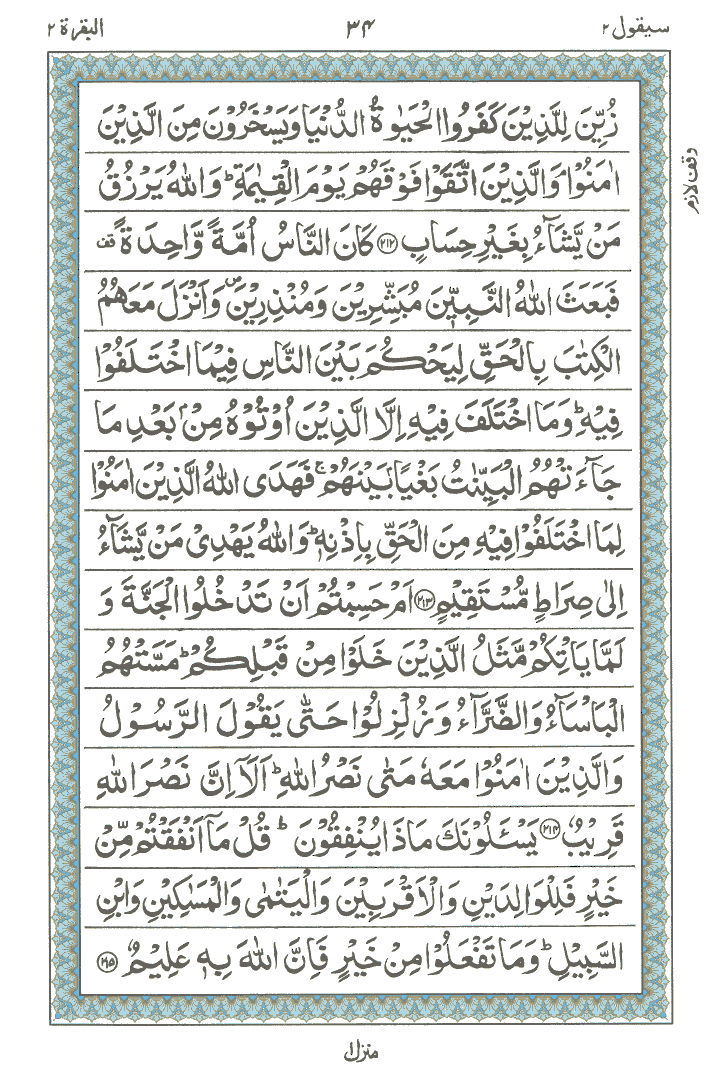 سيقول ٢ ٣۴ البقرة ٢
زُيِّنَ لِلَّذِيْنَ كَفَرُوا الْحَيٰوةُ الدُّنْيَا وَيَسْخَرُوْنَ مِنَ الَّذِيْنَ
وقف لازم
اٰمَنُوْا ۘ وَالَّذِيْنَ اتَّقَوْا فَوْقَهُمْ يَوْمَ الْقِيٰمَةِ ؕ وَاللّٰهُ يَرْزُقُ
مَنْ يَّشَآءُ بِغَيْرِ حِسَابٍ ﴿٢١٢﴾ كَانَ النَّاسُ اُمَّةً وَّاحِدَةً ۫
فَبَعَثَ اللّٰهُ النَّبِيّٖنَ مُبَشِّرِيْنَ وَمُنْذِرِيْنَ ۪ وَاَنْزَلَ مَعَهُمُ
الْكِتٰبَ بِالْحَقِّ لِيَحْكُمَ بَيْنَ النَّاسِ فِيْمَا اخْتَلَفُوْا
فِيْهِ ؕ وَمَا اخْتَلَفَ فِيْهِ اِلَّا الَّذِيْنَ اُوْتُوْهُ مِنْۢ بَعْدِ مَا
جَآءَتْهُمُ الْبَيِّنٰتُ بَغْيًۢا بَيْنَهُمْ ۚ فَهَدَى اللّٰهُ الَّذِيْنَ اٰمَنُوْا
لِمَا اخْتَلَفُوْا فِيْهِ مِنَ الْحَقِّ بِاِذْنِهٖ ؕ وَاللّٰهُ يَهْدِيْ مَنْ يَّشَآءُ
اِلٰى صِرَاطٍ مُّسْتَقِيْمٍ ﴿٢١٣﴾ اَمْ حَسِبْتُمْ اَنْ تَدْخُلُوا الْجَنَّةَ وَ
لَمَّا يَاْتِكُمْ مَّثَلُ الَّذِيْنَ خَلَوْا مِنْ قَبْلِكُمْ ؕ مَسَّتْهُمُ
الْبَاْسَآءُ وَالضَّرَّآءُ وَزُلْزِلُوْا حَتّٰى يَقُوْلَ الرَّسُوْلُ
وَالَّذِيْنَ اٰمَنُوْا مَعَهٗ مَتٰى نَصْرُ اللّٰهِ ؕ اَلَآ اِنَّ نَصْرَ اللّٰهِ
قَرِيْبٌ ﴿٢١۴﴾ يَسْـَٔلُوْنَكَ مَاذَا يُنْفِقُوْنَ ؕ قُلْ مَآ اَنْفَقْتُمْ مِّنْ
خَيْرٍ فَلِلْوَالِدَيْنِ وَالْاَقْرَبِيْنَ وَالْيَتٰمٰى وَالْمَسٰكِيْنِ وَابْنِ
السَّبِيْلِ ؕ وَمَا تَفْعَلُوْا مِنْ خَيْرٍ فَاِنَّ اللّٰهَ بِهٖ عَلِيْمٌ ﴿٢١۵﴾
منزل ١